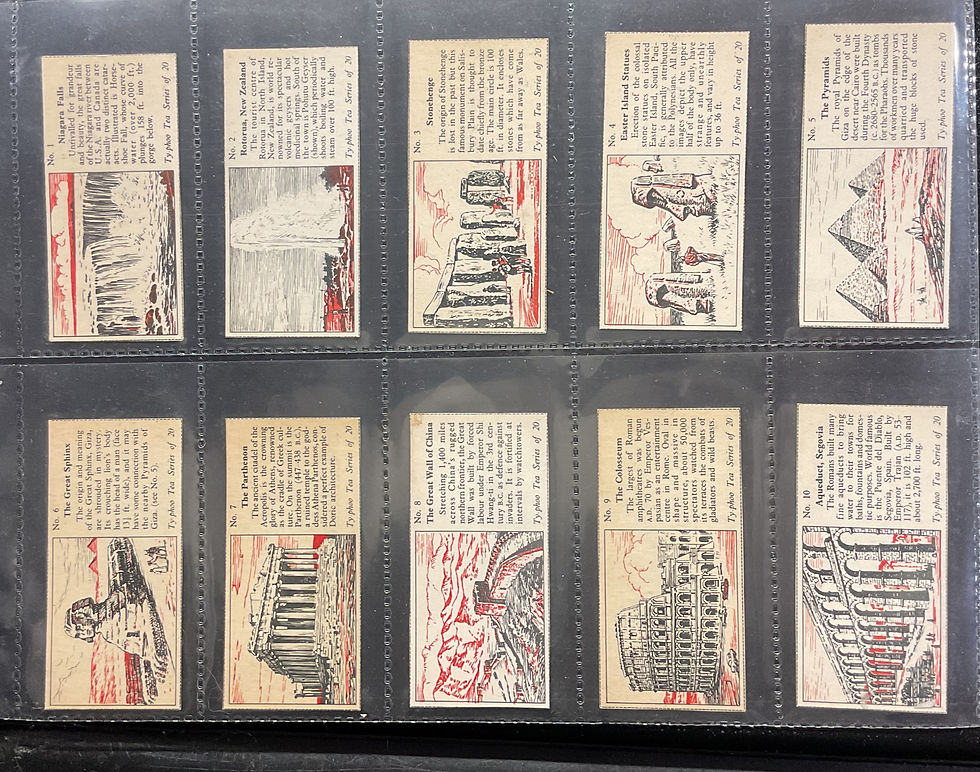 No. 1
Niagara Falls
Unrivalled for grandeur
and beauty, the great falls
of the Niagara river between
U.S.A. and Canada are
actually two distinct catar-
acts. Illustrated is Horse-
shoe Fall, whose curve of
water (over 2,000 ft.)
plunges 158 ft. into the
gorge below.
Typhoo Tea Series of 20
No. 2
Rotorua, New Zealand
The tourist centre of
Rotorua in North Island,
New Zealand, is world re-
nowned for its spectacular
volcanic geysers and hot
medicinal springs. South of
the town is Pohutu Geyser
(shown), which periodically
shoots boiling water and
steam over 100 ft. high.
Typhoo Tea Series of 20
No. 3
Stonehenge
The origin of Stonehenge
is lost in the past but this
famous monument on Salis-
bury Plain is thought to
date chiefly from the bronze
age. The main circle is 100
ft. in diameter. It encloses
stones which have come
from as far away as Wales.
Typhoo Tea Series of 20
No. 4
Easter Island Statues
Erection of the colossal
stone statues on isolated
Easter Island, South Paci-
fic, is generally attributed
to the Polynesians. All the
images depict the upper
half of the body only, have
strange and unearthly
features, and vary in height
up to 36 ft.
Typhoo Tea Series of 20
No. 5
The Pyramids
The royal Pyramids of
Giza on the edge of the
desert near Cairo were built
during the Fourth Dynasty
(c. 2680-2565 B.C.) as tombs
for the Pharaohs. Thousands
of workmen over many years
quarried and transported
the huge blocks of stone
used.
Typhoo Tea Series of 20
No. 6
The Great Sphinx
The origin and meaning
of the Great Sphinx, Giza,
is shrouded in mystery.
Its crouching lion's body
has the head of a man (face
13½ ft. wide), and it may
have some connection with
the nearby Pyramids of
Giza. (see No. 5).
Typhoo Tea Series of 20
No. 7
The Parthenon
The ancient citadel of the
Acropolis is the crowning
glory of Athens, renowned
as the cradle of Greek cul-
ture. On the summit is the
Parthenon (447-438 B.C.),
a ruined temple to the god-
dess Athena Parthenos, con-
sidered a perfect example of
Doric architecture.
Typhoo Tea Series of 20
No. 8
The Great Wall of China
Stretching 1,400 miles
across China's rugged
northern frontier, the Great
Wall was built by forced
labour under Emperor Shi
Hwang-ti in the 3rd cen-
tury B.C. as defence against
invaders. It is fortified at
intervals by watchtowers.
Typhoo Tea Series of 20
No. 9
The Colosseum
The largest of Roman
amphitheatres was begun
A.D. 70 by Emperor Ves-
pasian as an entertainment
centre in Rome. Oval in
shape and massive in
structure, about 50,000
spectators watched from
its terraces the combats of
gladiators and wild beasts.
Typhoo Tea Series of 20
No. 10
Aqueduct, Segovia
The Romans built many
fine aqueducts to bring
water to their towns for
baths, fountains and domes-
tic purposes. World famous
is the Puente del Diablo,
Segovia, Spain. Built by
Emperor Trajan (A.D. 53-
117), it is 102 ft. high and
about 2,700 ft. long.
Typhoo Tea Series of 20